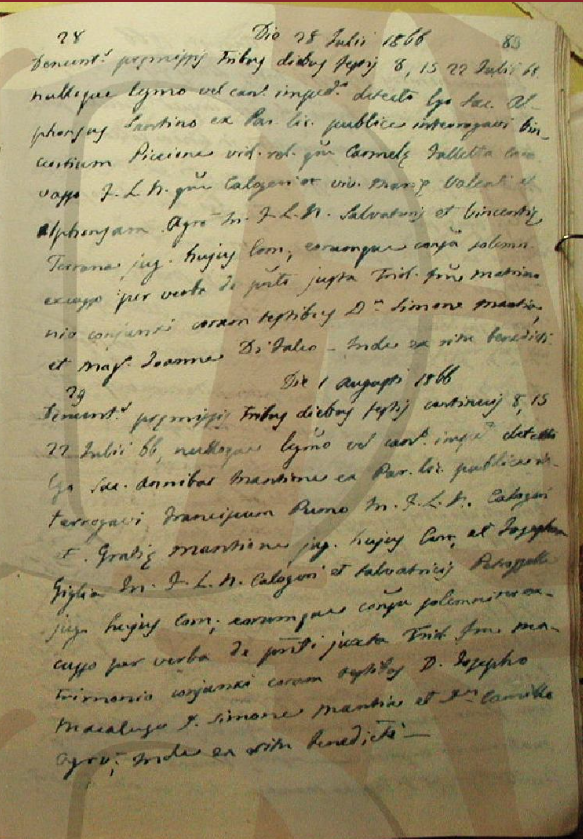 28 Die 28 Julii 1866 85
Denunt.s premissis tribus diebus festis 8, 15 22 Julii 66
nulloque legmo vel can.o imped.o detecto Ego Sac. Al-
phonsus Santino ex Par. lic. publice interrogavi Vin-
centium Piccione vid. rel. qm Carmelę Falletta
F. L. N. qm Calogeri et viv. Marię Valenti et
Alphonsam Agrò In. F. L. N. Salvatoris et Vincentię
Terrana jug. hujus Com; eorumque consu solemn.
per verba de pnti juxta Trid. fm matrimo
nio conjunxi coram testibus D.n Simone Mantio
et Mag.o Joanne Di Falco – Inde ex ritu benedixi
29 Die 1 Augusti 1866
Denunt.s premissis tribus diebus festis continuis 8, 15
22 Julii 66, nulloque legmo vel can.o imped.o detecto
Ego Sac. Annibal Mantione ex Par. lic. publice in-
terrogavi Franciscum Puma In. F. L. N. Calogeri
et Gratię Mantione jug. hujus Com, et Josepham
Giglia In. F. L. N. Calogeri et Salvatricis
jug. hujus Com; eorumque consu solemni
per verba de pnti juxta Trid. fm ma-
trimonio conjunxi coram testibus D. Josepho
Macaluso D. Simone Mantia et Camillo
Agrò; Inde ex ritu benedixi –